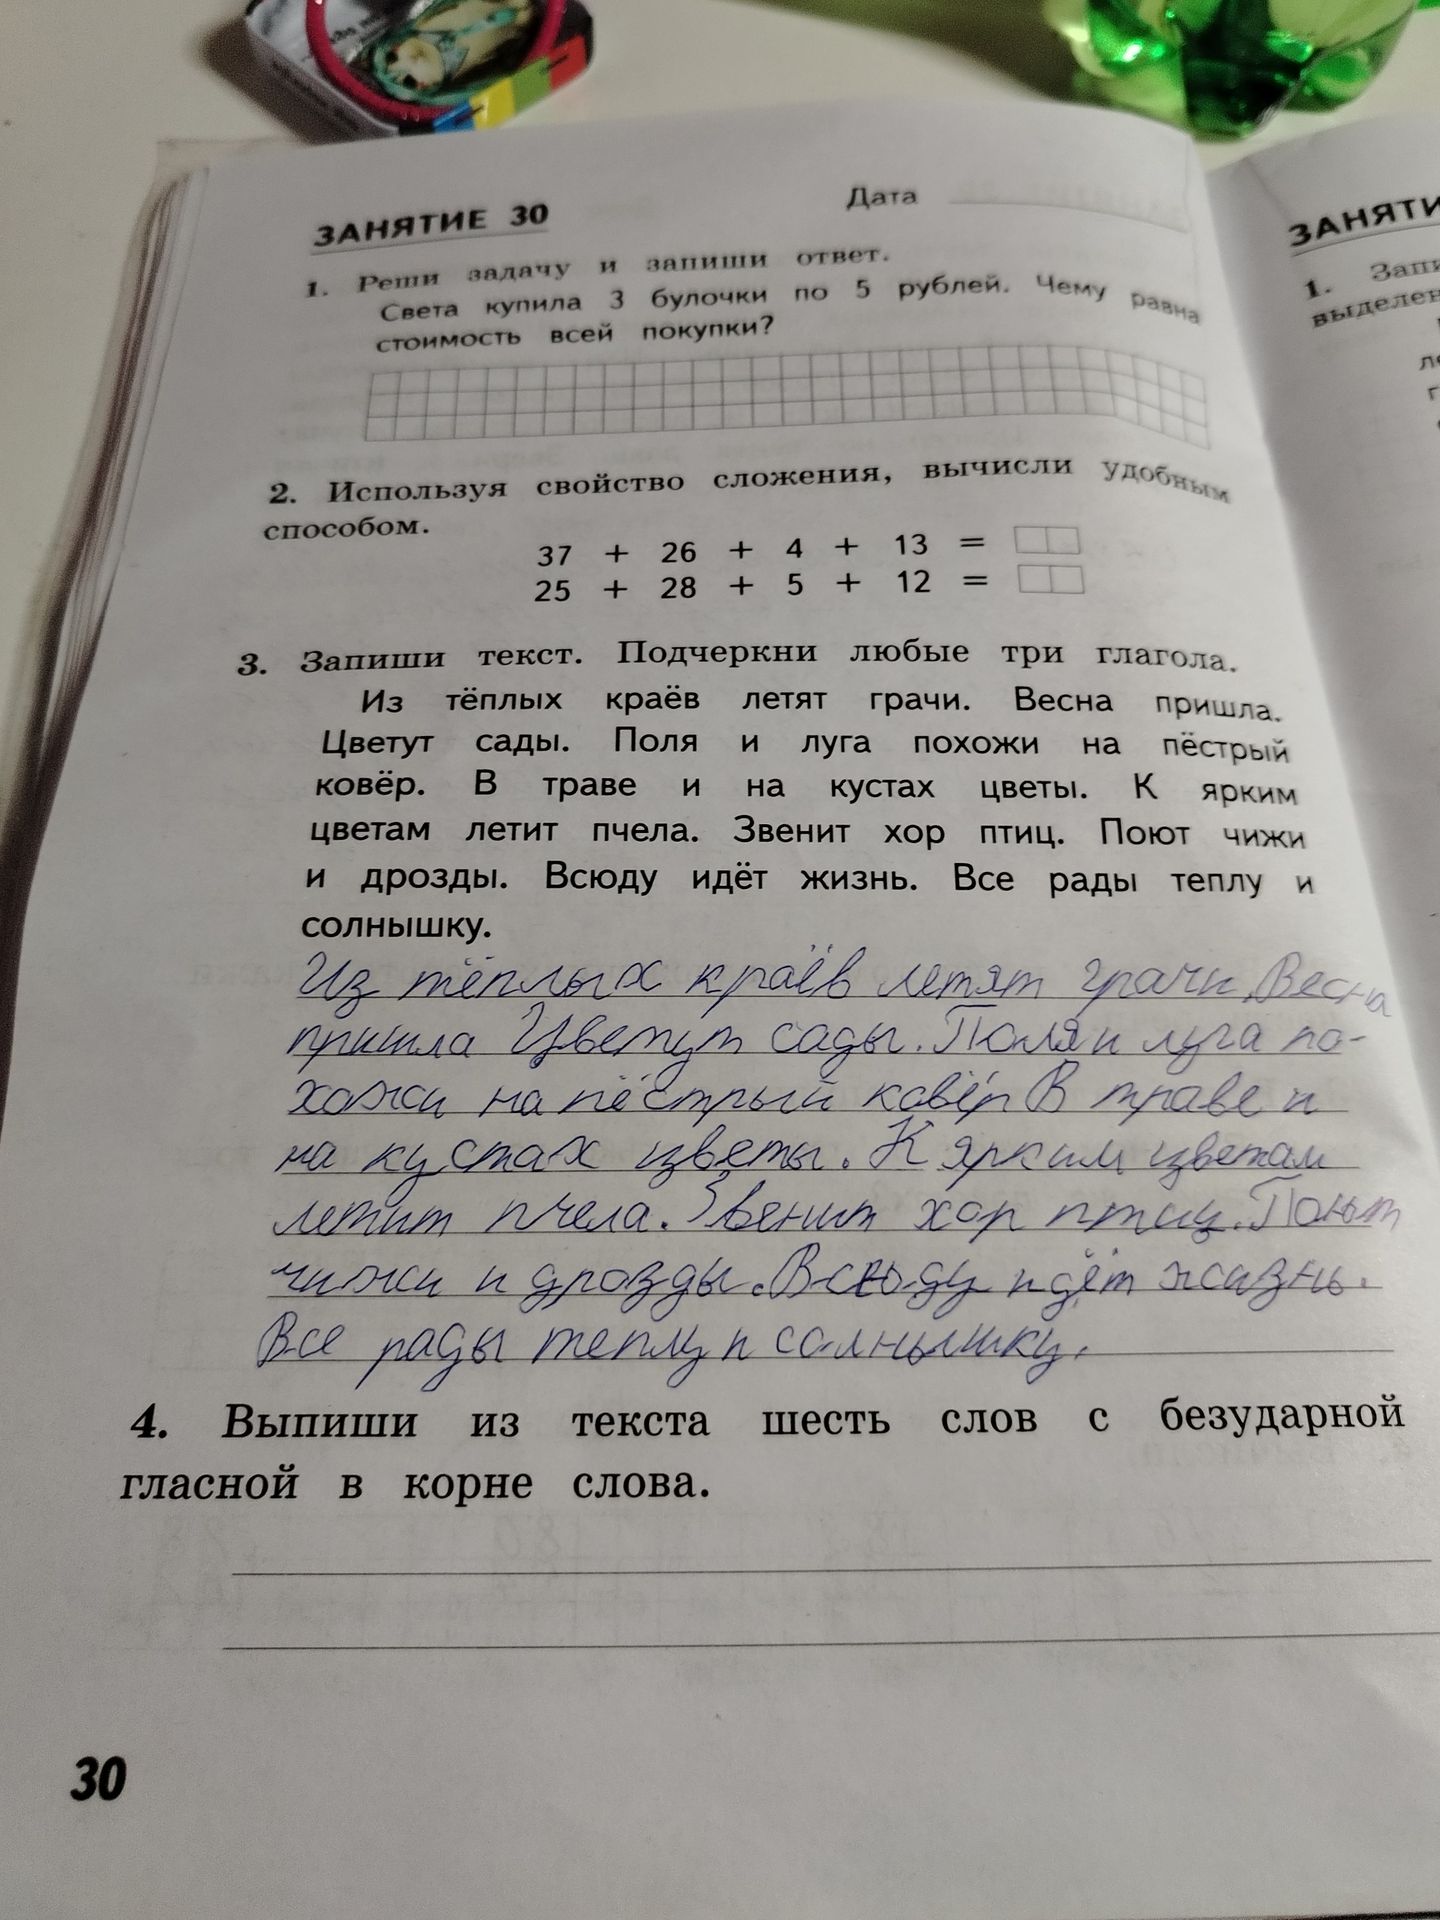 ЗАНЯТИЕ 30
Дата
1. Реши задачу и запиши ответ.
Света купила 3 булочки по 5 рублей. Чему равна
стоимость всей покупки?
2. Используя свойство сложения, вычисли удобным
способом.
37 + 26 + 4 + 13 =
25 + 28 + 5 + 12 =
3. Запиши текст. Подчеркни любые три глагола.
Из тёплых краёв летят грачи. Весна пришла.
Цветут сады. Поля и луга похожи на пёстрый
ковёр. В траве и на кустах цветы. К ярким
цветам летит пчела. Звенит хор птиц. Поют чижи
и дрозды. Всюду идёт жизнь. Все рады теплу и
солнышку.
Из тёплых краёв летят грачи. Весна
пришла Цветут сады. Поля и луга по-
хожи на пёстрый ковёр В траве и
на кустах цветы. К ярким цветам
летит пчела. Звенит хор птиц. Поют
чижи и дрозды. Всюду идёт жизнь.
Все рады теплу и солнышку.
4. Выпиши из текста шесть слов с безударной
гласной в корне слова.
30
ЗАНЯТИ
1. Запи
выделен